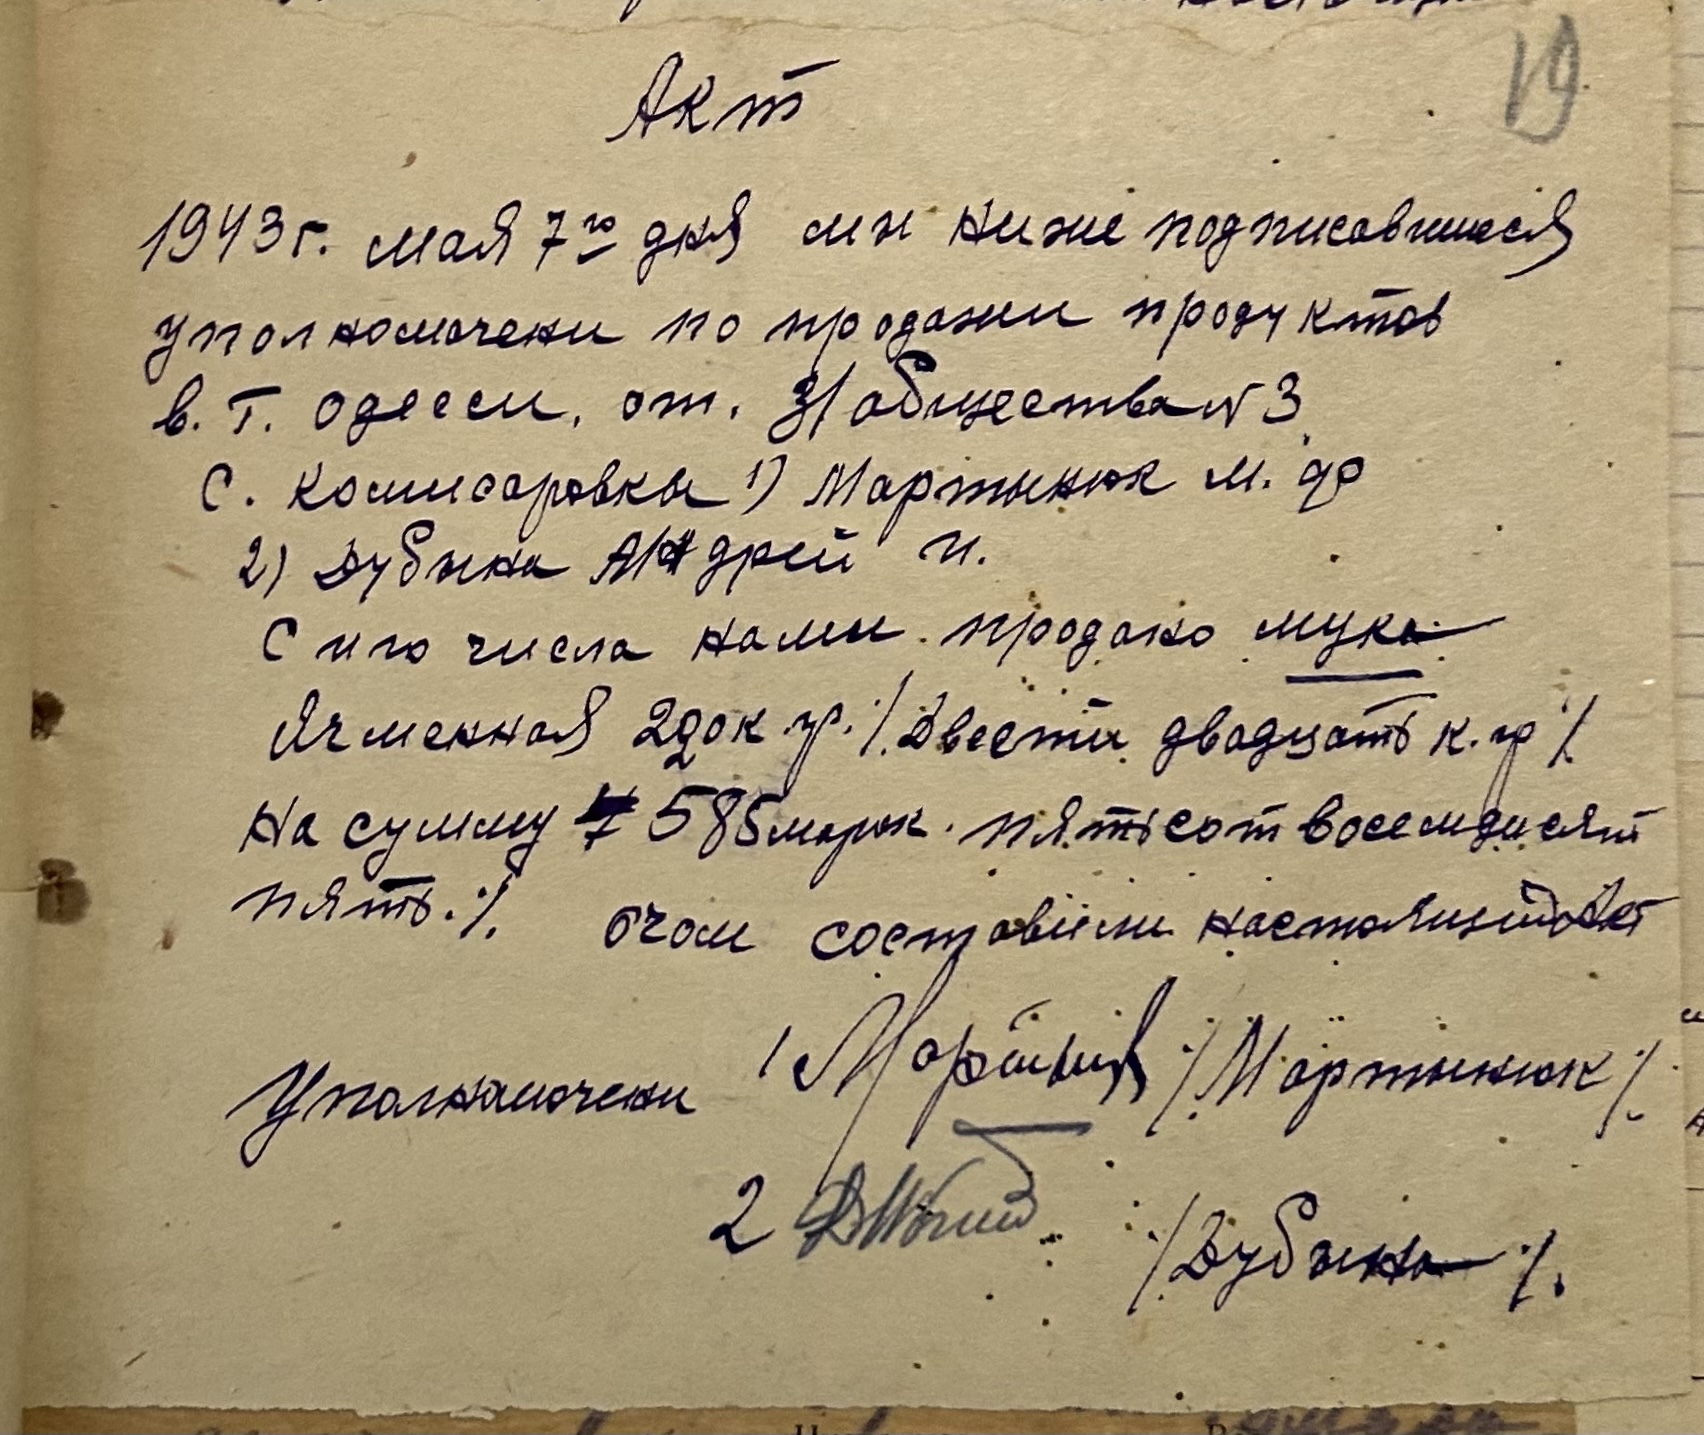 19
Акт
1943 г. мая 7го дня мы ниже подписавшиеся
уполномочени по продажи продуктов
в. г. Одесси, от. З/общества N 3
С. Комисаровки 1) Мартынюк М. Ф
2) Дубына Андрей И.
С его числа нами продано мука
Ячменная 220 к.гр. ./. Двести двадцать к. гр ./.
На сумму 585 марок. пятьсот восемдисят
пять ./. очом составили настоящий Акт
Уполномочени 1 /. Мартынюк ./.
2 /. Дубына ./.